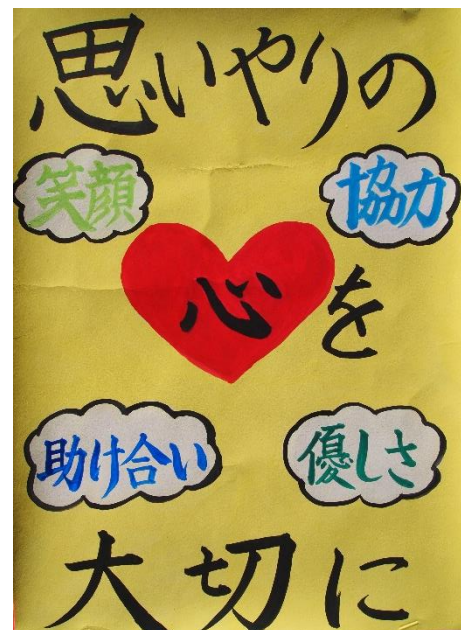 思いやりの
笑顔 協力
心を
助け合い 優しさ
大切に